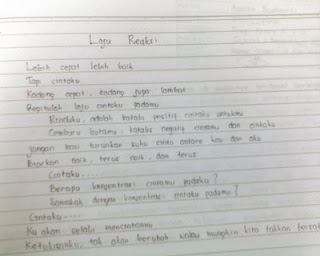 Laju Reaksi
Lebih cepat lebih baik
Tapi cintaku
Kadang cepat, kadang juga lambat
Begitulah laju cintaku padamu
Rinduku, adalah katalis positif cintaku untukmu
Cemburu butamu, katalis negatif cintamu dan cintaku
Jangan kau turunkan suhu cinta antara kau dan aku
Biarkan naik, terus naik, dan terus
Cintaku.....
Berapa konsentrasi cintamu padaku?
Samakah dengan konsentrasi cintaku padamu?
Cintaku....
Ku akan selalu mencintaimu
Ketulusanku, tak akan berubah walau mungkin kita takkan